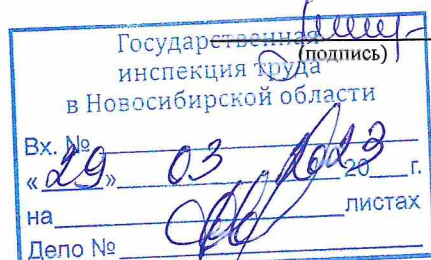 (подпись)
Государственная
инспекция труда
в Новосибирской области
Вх. №
«29» 03 2023 20 г.
на листах
Дело №